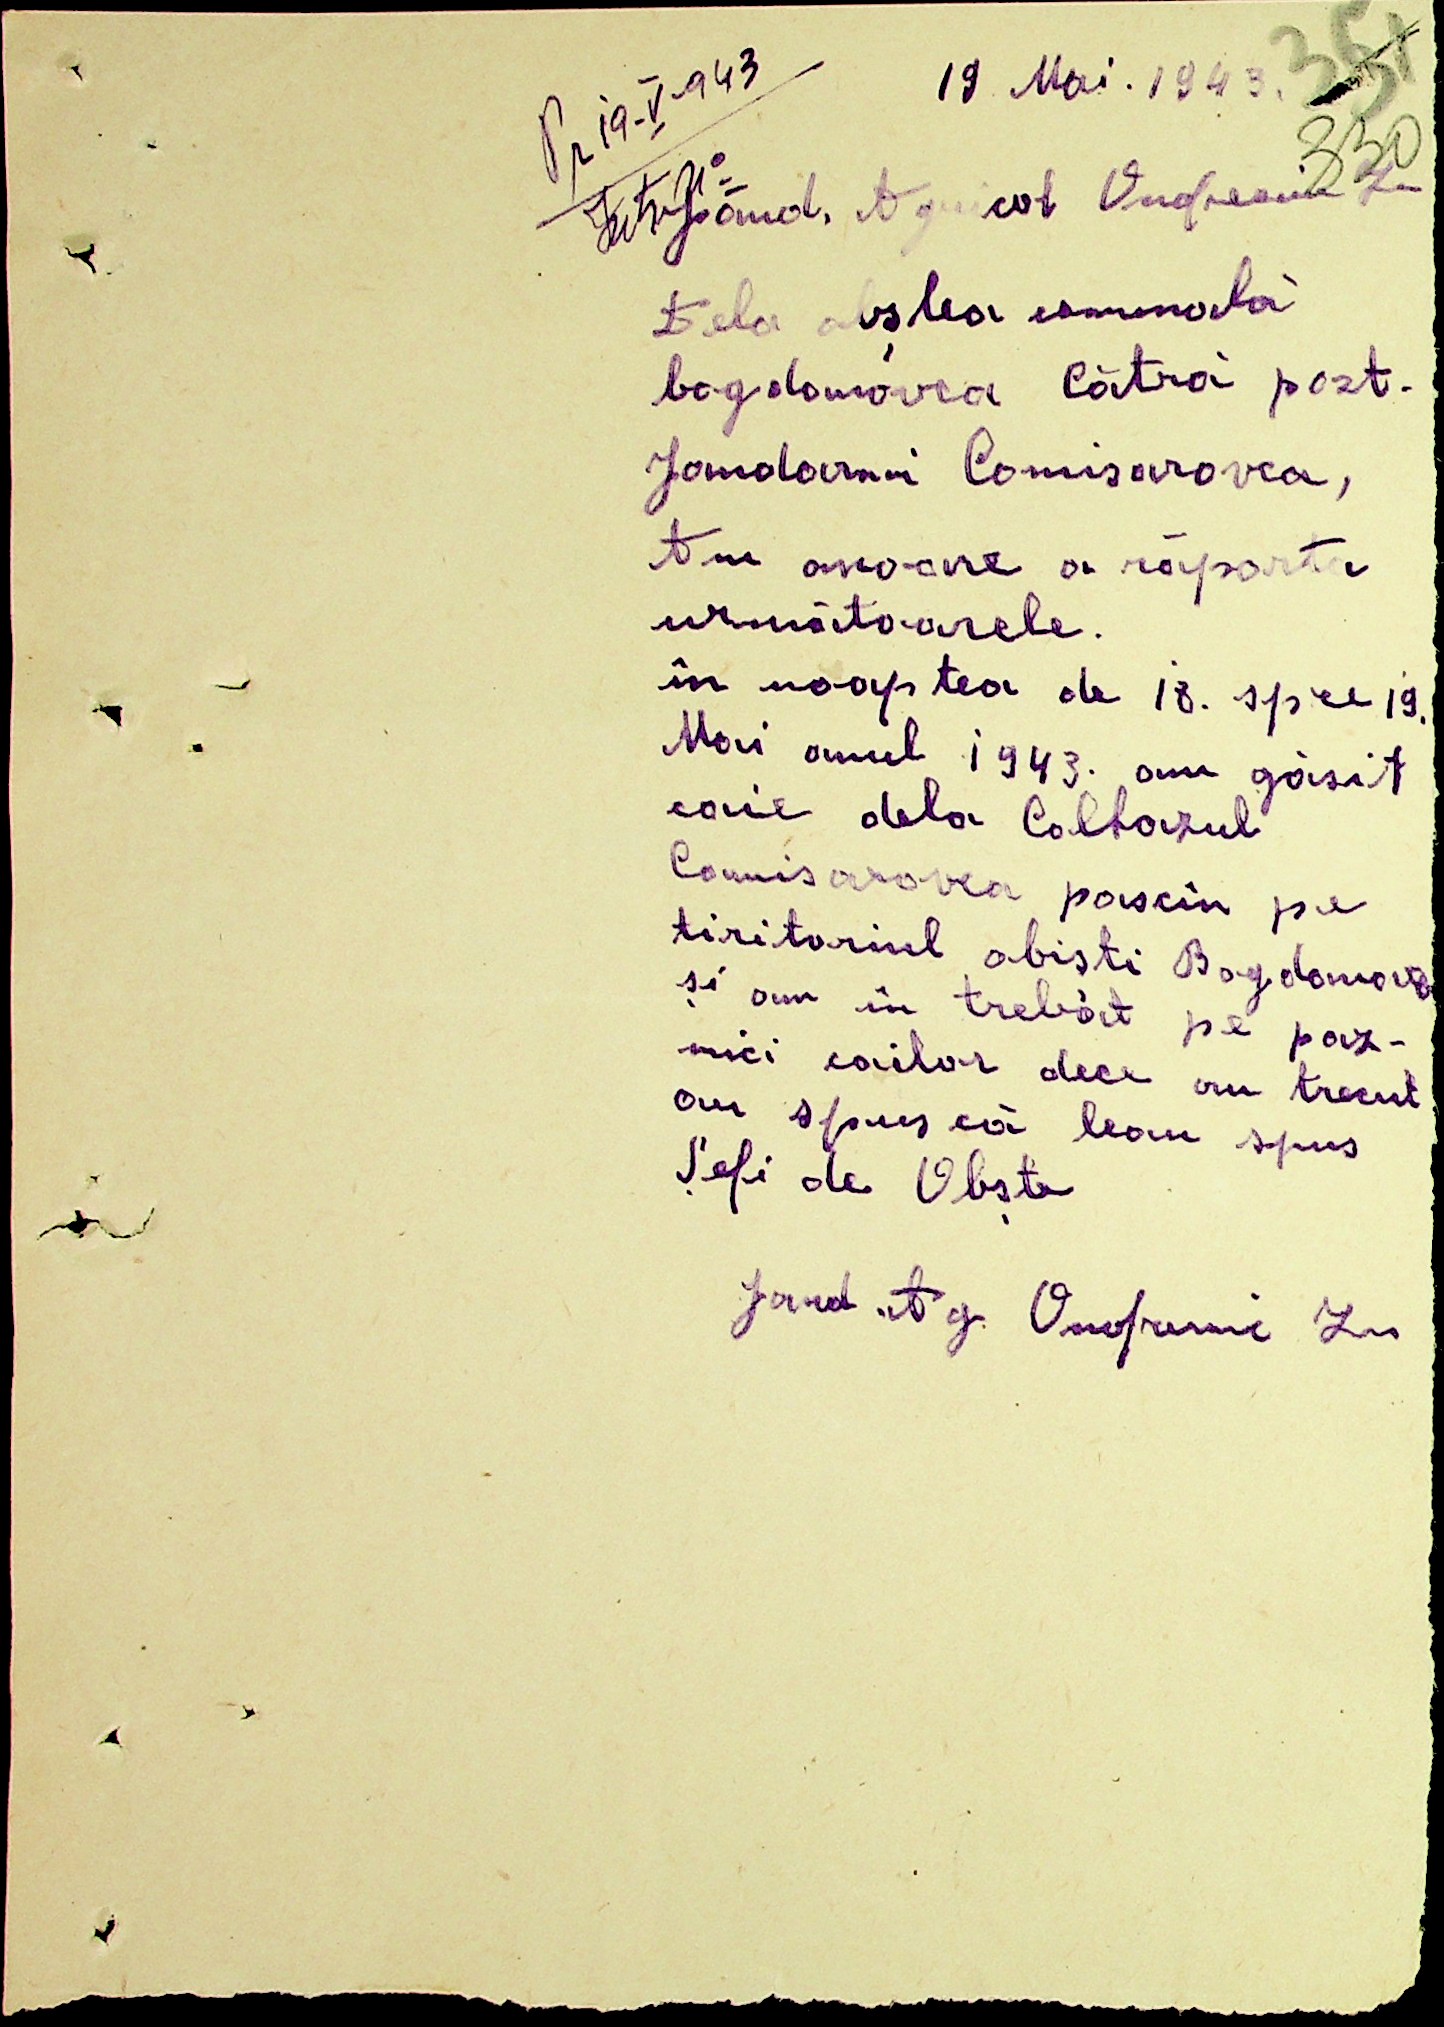 19 Mai. 1943.
351
330
Pr 19-V-943
Jând. Agricol Onofreiciu
Dela obștea comunală
bogdanovca Cătră post.
Jandarmi Comisarovca,
Am onoare a răporta
următoarele.
în noaptea de 18. spre 19.
Mai anul 1943. am găsit
caii dela Colhozul
Comisarovca pascîn pe
tiritoriul obiști Bogdanovca
și am în trebat pe paz-
nici cailor dece au trecut
au spus că leau spus
Șefi de Obște
Jand. Ag.